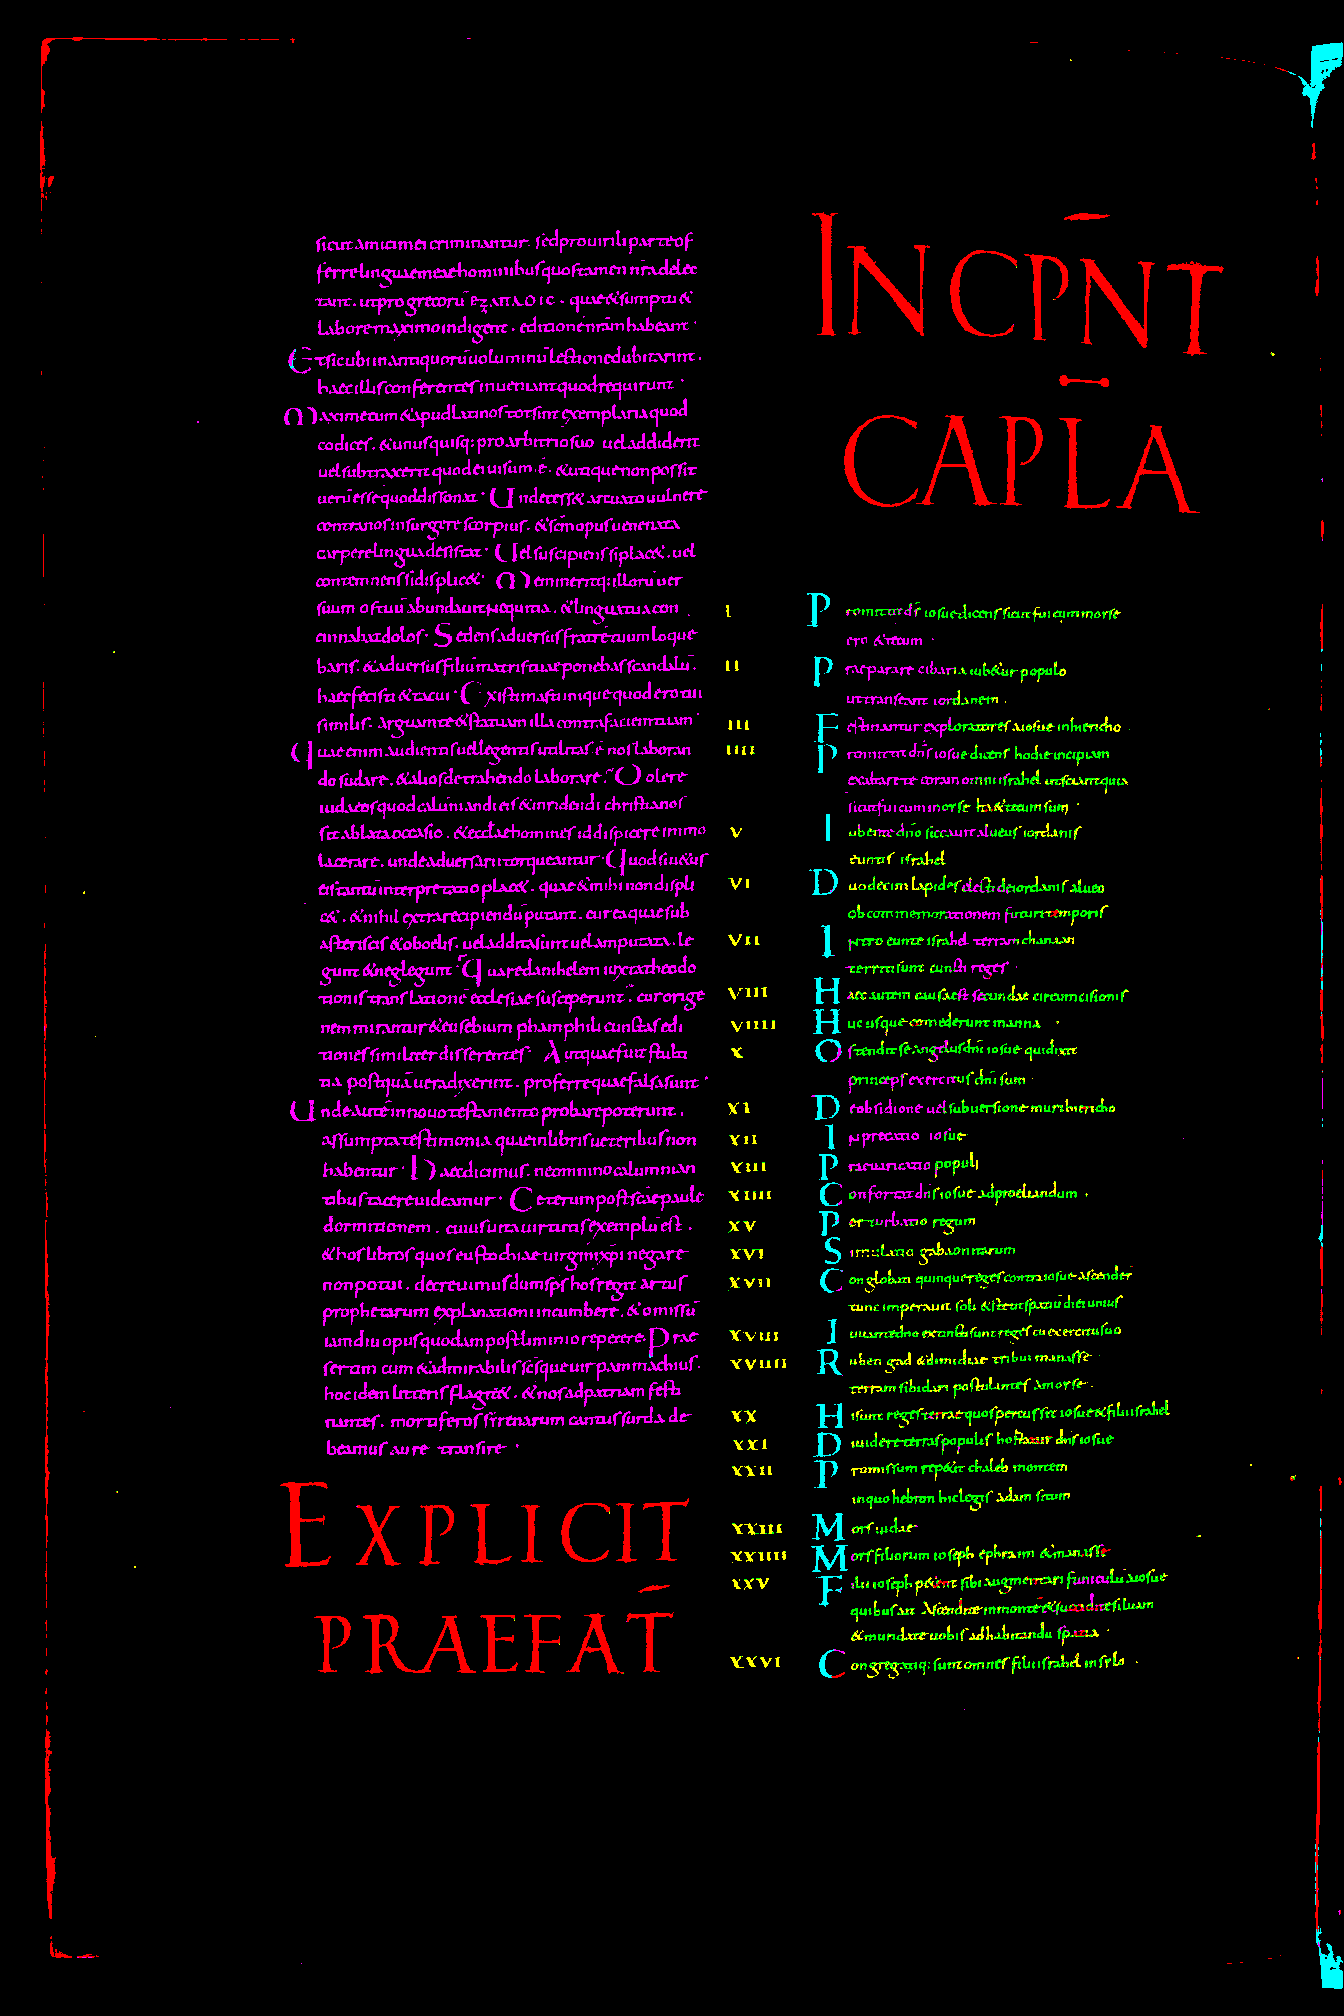 sicut amici mei criminantur. sed pro uirili parte of
ferre linguae meae hominibus quos tamen nr̄a delec
tant. ut pro grecorū ἑξαπλοις. quae & sumptu &
labore maximo indigent. editionē nr̄am habeant.
Et sicubi in antiquorū uoluminū lectione dubitarint.
haec illis conferentes inueniant quod requirunt.
Maxime cum & apud latinos tot sint exemplaria quod
codices. & unusquisq: pro arbitrio suo uel addiderit
uel subtraxerit quod ei uisum ē. & utique non possit
uerū esse quod dissonat. Unde cess& arcuato uulnere
contra nos insurgere scorpius. & sc̄m opus uenenata
carpere lingua desistat. Uel suscipiens si plac&. uel
contemnens si displic&. Memineritq: illorū uer
suum os tuū abundauit nequitia. & lingua tua con
cinnabat dolos. Sedens aduersus fratrē tuum loque
baris. & aduersus filiū matris tuae ponebas scandalū.
haec fecisti & tacui. Existimasti inique quod ero tui
similis. arguam te & statuam illa contra faciem tuam.
Quae enim audientis uel legentis utilitas. ē nos laboran
do sudare. & alios detrahendo laborare. Dolere
iudaeos quod calūniandi eis & inridendi christianos
sit ablata occasio. & eccl̄ae homines id dispicere immo
lacerare. unde aduersarii torqueantur. Quod si u&us
eis tantū interpretatio plac&. quae & mihi non displi
c&. & nihil extra recipiendū putant. cur ea quae sub
asteriscis & obaelis. uel addita sunt uel amputata. le
gunt & neglegunt. Quare danihelem iuxta theodo
tionis translationē ecclesiae susceperunt. cur orige
nem mirantur & eusebium phamphili cunctas edi
tiones similiter disserentes. Aut quae fuit stulti
tia postquā uera dixerint. proferre quae falsa sunt.
Unde autē in nouo testamento probare poterunt.
assumpta testimonia quae in libris ueteribus non
habentur. Haec dicimus. ne omnino calumnian
tibus tacere uideamur. Ceterum post sc̄ae paulę
dormitionem. cuius uita uirtutis exemplū est.
& hos libros quos eustochiae uirgini xp̄i negare
non potui. decreuimus dum sps̄ hos regit artus
prophetarum explanationi incumbere. & omissū
iam diu opus quodam postliminio repetere. Prae
sertim cum & admirabilis sc̄sque uir pammachius.
hoc idem litteris flagit&. & nos ad patriam festi
nantes. mortiferos sirenarum cantus surda de
beamus aure transire.
EXPLICIT
PRAEFAT̄
INCP̄NT
CAPL̄A
I Promittit dn̄s iosue dicens sicut fui cum morse
ero & tecum.
II Praeparare cibaria iub&ur populo
ut transeant iordanem.
III Festinantur exploratores a iosue in hiericho
IIII Promittit dn̄s iosue dicens hodie incipiam
exaltare te coram omni israhel ut sciant quia
sicut fui cum morse ita & tecum sum.
V Iubente dn̄o siccauit alueus iordanis
euntis israhel
VI Duodecim lapides electi de iordanis alueo
ob commemorationem futuri temporis
VII Introeunte israhel terram chanaan
territi sunt cuncti reges.
VIII Haec autem causa est secundae circumcisionis
VIIII Hucusque comederunt manna.
X Ostendit se angelus dn̄i iosue qui dixit
princeps exercitus dn̄i sum.
XI De obsidione uel subuersione muri hiericho
XII Inprecatio iosue
XIII Praeuaricatio populi
XIIII Confortat dn̄s iosue ad proeliandum.
XV Perturbatio regum
XVI Simulatio gabaonitarum
XVII Conglobati quinque reges contra iosue ascender̄
tunc imperauit soli & stetit spatiū diei unius
XVIII Iuuante dn̄o extincti sunt reges cū exercitu suo
XVIIII Ruben gad & dimidiae tribui manasse
terram sibi dari postulantes a morse.
XX Hi sunt reges terrae quos percussit iosue & filii israhel
XXI Diuidere terras populis hortatur dn̄s iosue
XXII Promissum repetit chaleb montem
in quo hebron hic legis adam situm
XXIII Mors iudae
XXIIII Mors filiorum ioseph ephraim & manasse
XXV Filii ioseph petent sibi augmentari funiculū a iosue
quibus ait. Ascendite in montē & succidite siluam
& mundate uobis ad habitandū spatia.
XXVI Congregatiq: sunt omnes filii israhel in sylo.